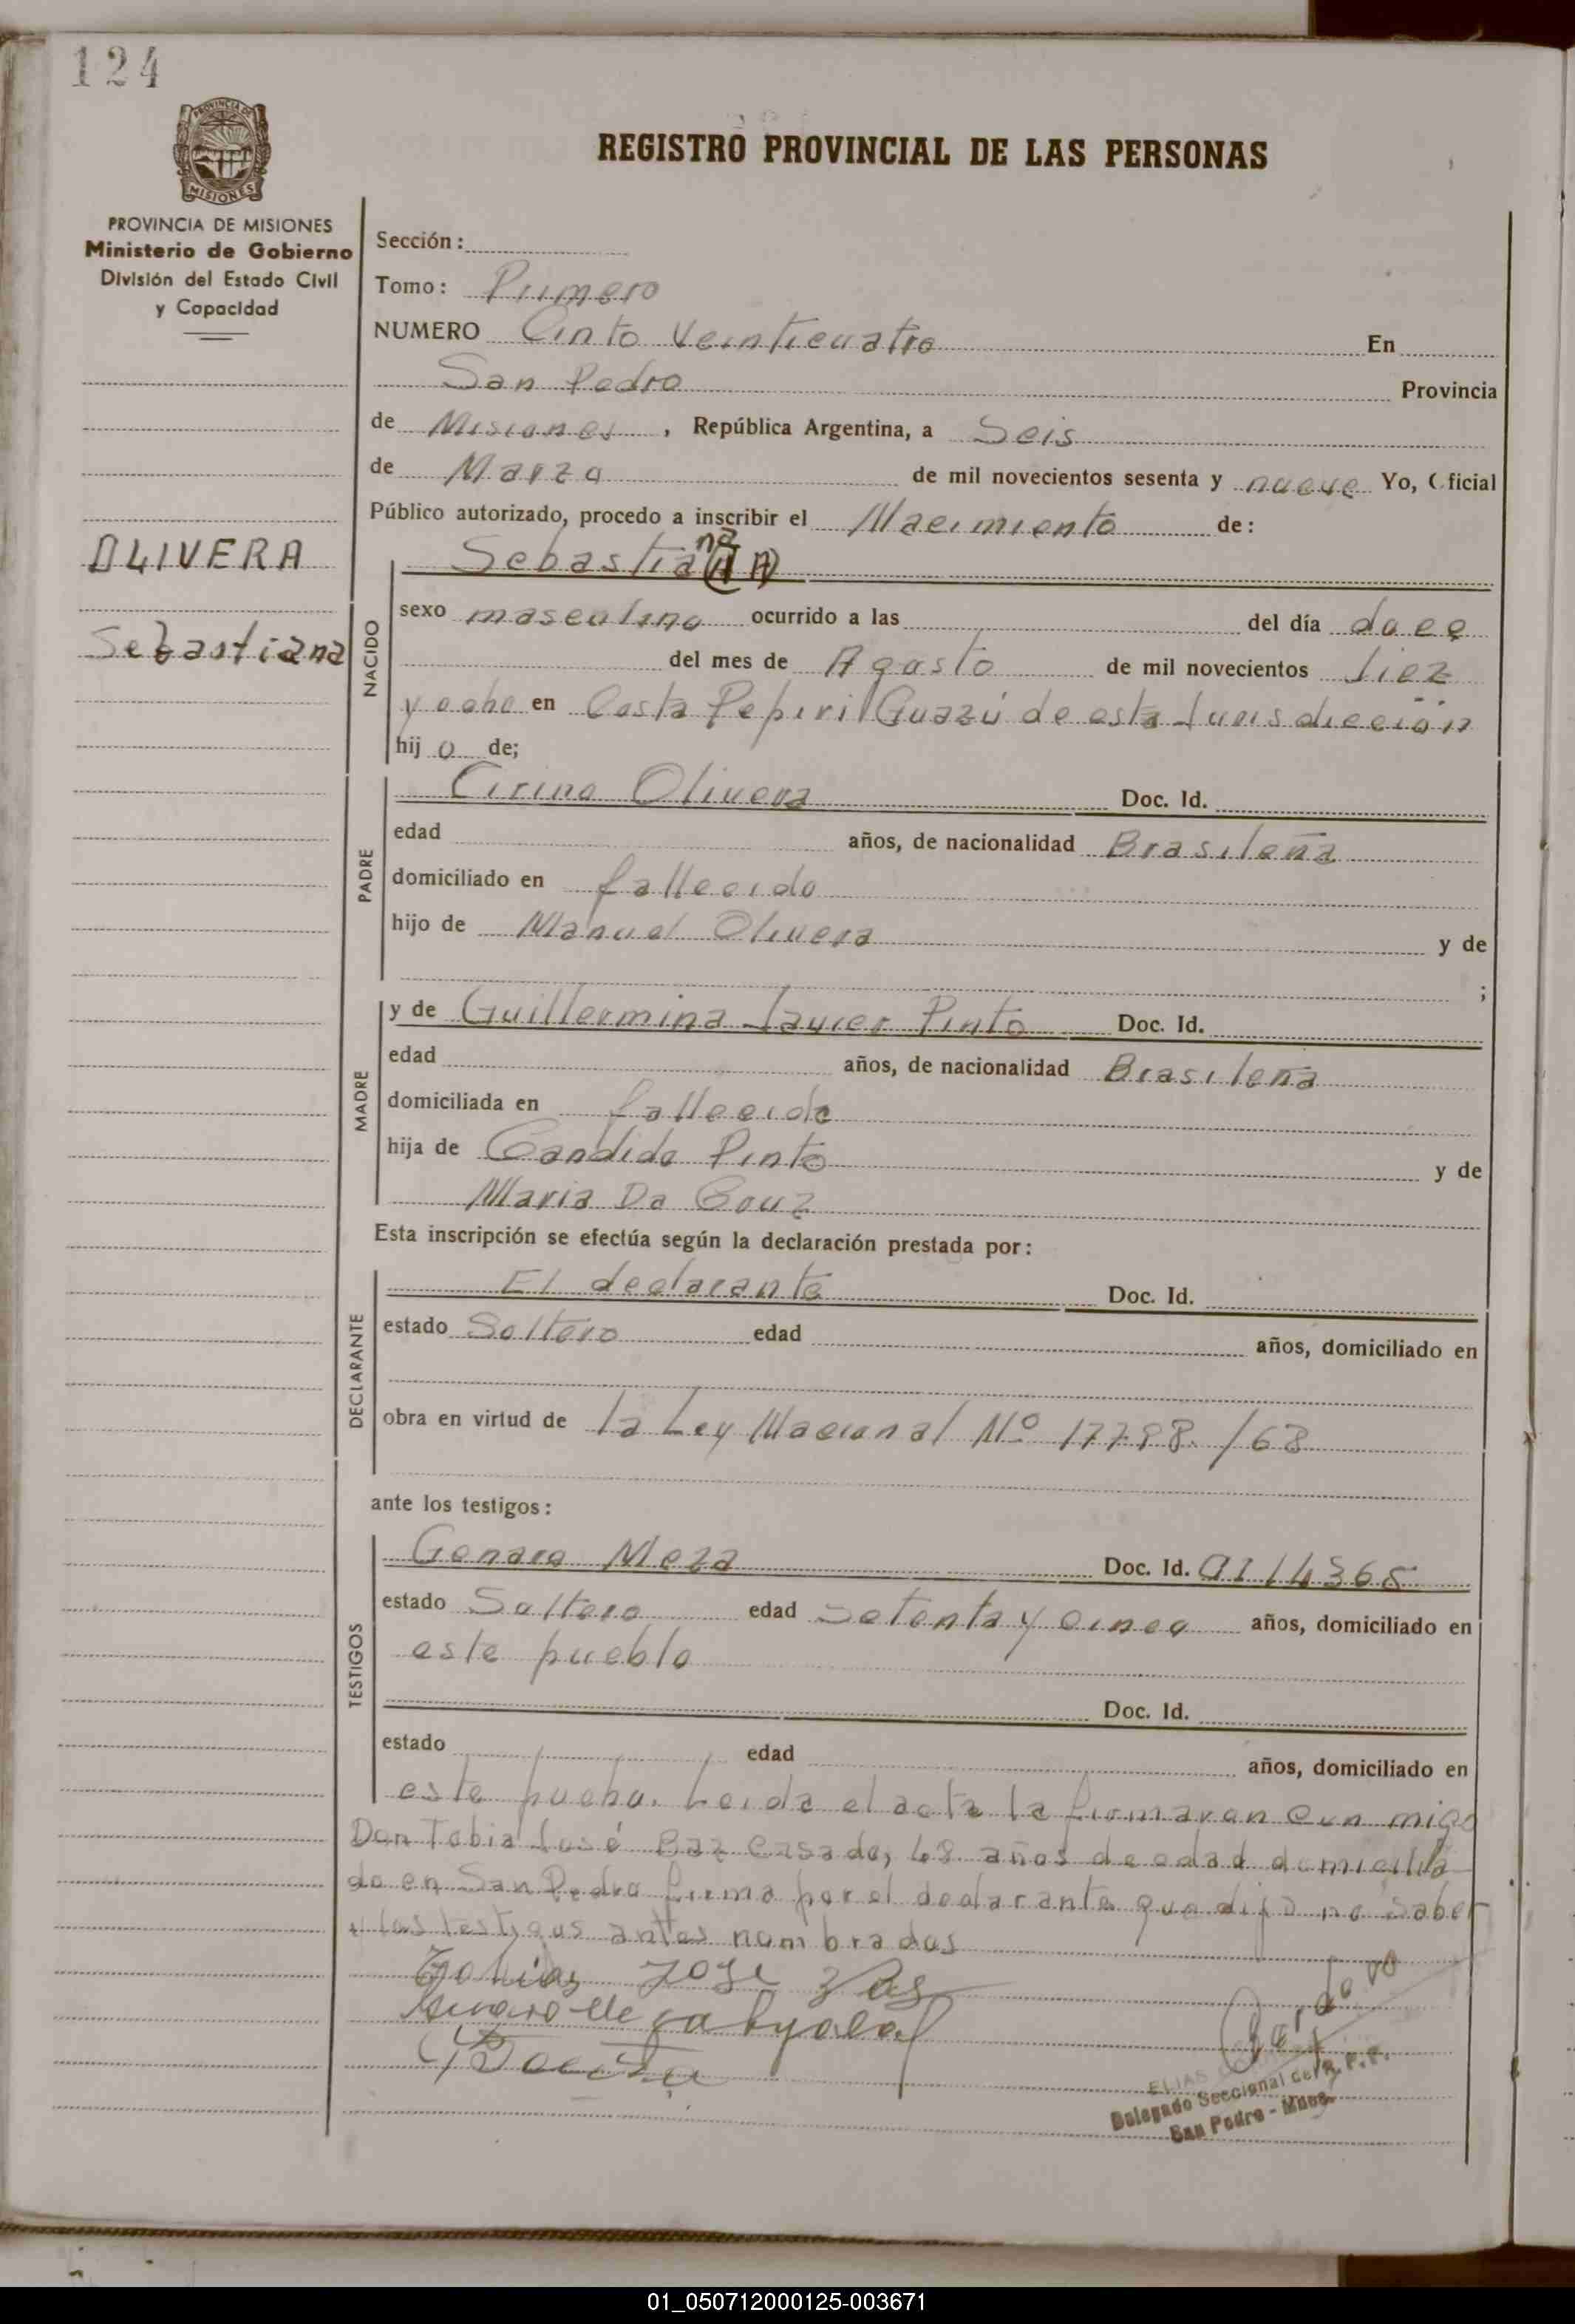 124
PROVINCIA DE
MISIONES
REGISTRO PROVINCIAL DE LAS PERSONAS
PROVINCIA DE MISIONES
Ministerio de Gobierno
División del Estado Civil
y Capacidad
OLIVERA
Sebastiana
Sección:
Tomo: Primero
NUMERO Cinto Veinticuatro En
San Pedro Provincia
de Misiones, República Argentina, a Seis
de Marzo de mil novecientos sesenta y nueve Yo, Oficial
Público autorizado, procedo a inscribir el Nacimiento de:
na
Sebastia
NACIDO
sexo masculino ocurrido a las del día doce
del mes de Agosto de mil novecientos diez
y ocho en Costa Pepiri Guazú de esta Jurisdicción
hijo de;
PADRE
Cirino Olivera Doc. Id.
edad años, de nacionalidad Brasileña
domiciliado en fallecido
hijo de Manuel Olivera y de
;
MADRE
y de Guillermina Javier Pinto Doc. Id.
edad años, de nacionalidad Brasileña
domiciliada en fallecida
hija de Candido Pinto y de
Maria Da Couz
Esta inscripción se efectúa según la declaración prestada por:
DECLARANTE
El declarante Doc. Id.
estado Soltero edad años, domiciliado en
obra en virtud de la Ley Nacional Nº /68
ante los testigos:
TESTIGOS
Genaro Meza Doc. Id.
estado Soltero edad Setenta y cinco años, domiciliado en
este pueblo
Doc. Id.
estado edad años, domiciliado en
este Leida el acta la firmaron con migo
Don Tobia José Baz Casado, 48 años de edad domicilia
do en San Pedro firma por el declarante que dijo no saber
y los testigos antes nombrados
Tobias José
ELIAS
Delegado Seccional del R. P. P.
San Pedro - Mnes.
01_050712000125-003671